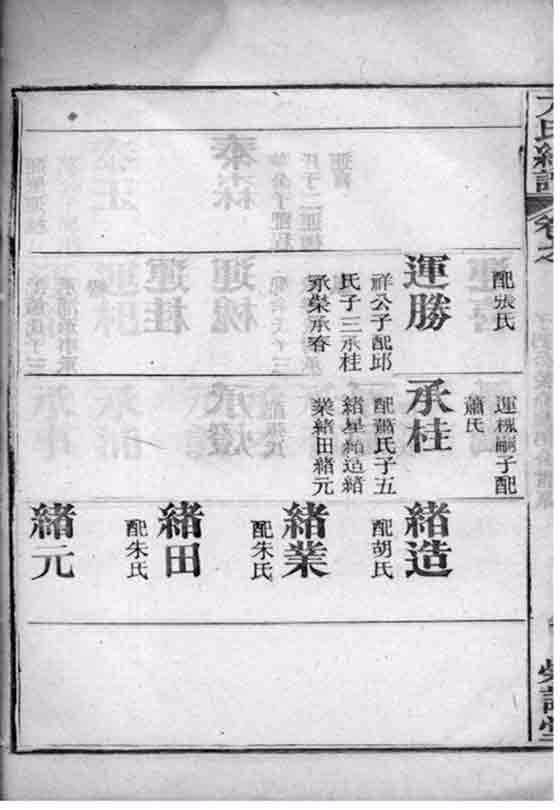 氏續譜
卷之
配張氏
運勝
祥公子配邱
氏子三承桂
承榮承春
運槐嗣子配
蕭氏
承桂
配蕭氏子五
緒星緒造緒
業緒田緒元
緒造
配胡氏
緒業
配朱氏
緒田
配朱氏
緒元